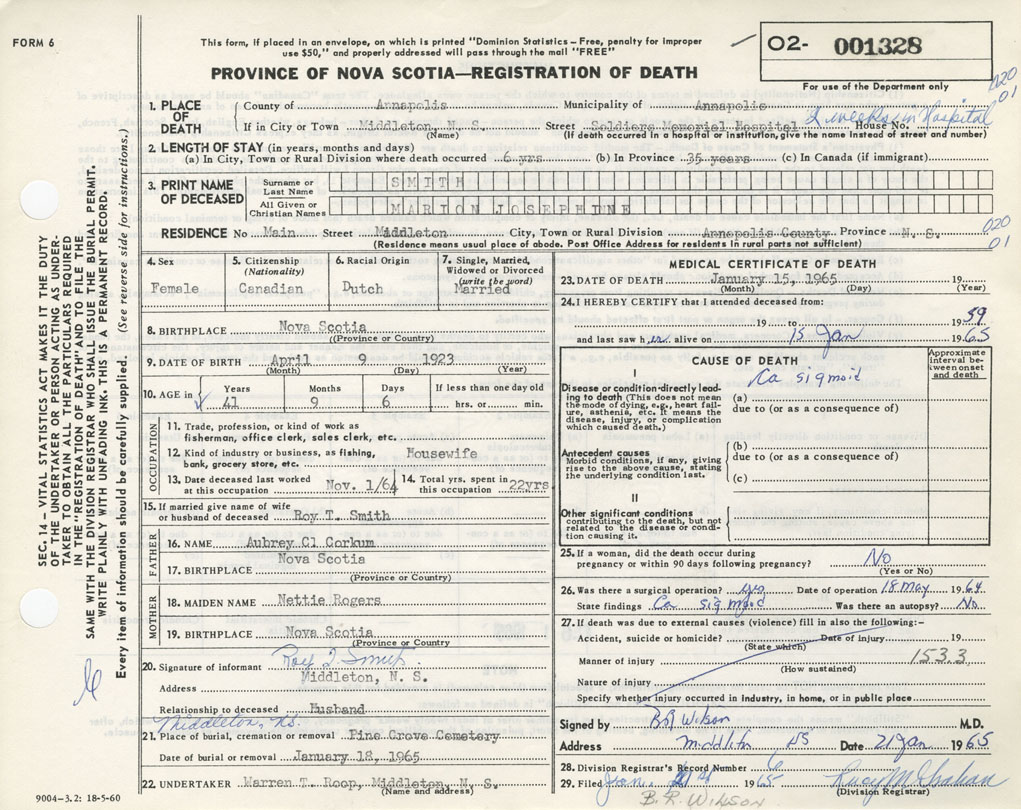 FORM 6
This form, if placed in an envelope, on which is printed "Dominion Statistics – Free, penalty for improper
use $50," and properly addressed will pass through the mail "FREE"
O2- 001328
PROVINCE OF NOVA SCOTIA—REGISTRATION OF DEATH
For use of the Department only
020
01
1. PLACE OF DEATH
County of Annapolis Municipality of Annapolis
2 weeks in Hospital
If in City or Town Middleton, N. S. Street Soldiers Memorial Hospital House No.
(Name) (If death occurred in a hospital or institution, give the name instead of street and number)
2. LENGTH OF STAY (in years, months and days)
(a) In City, Town or Rural Division where death occurred 6 yrs (b) In Province 35 years (c) In Canada (if immigrant)
3. PRINT NAME OF DECEASED
Surname or Last Name SMITH
All Given or Christian Names MARION JOSEPHINE
020
01
RESIDENCE No Main Street Middleton City, Town or Rural Division Annapolis County Province N. S.
(Residence means usual place of abode. Post Office Address for residents in rural parts not sufficient)
4. Sex
Female
5. Citizenship
(Nationality)
Canadian
6. Racial Origin
Dutch
7. Single, Married,
Widowed or Divorced
(write the word)
Married
8. BIRTHPLACE Nova Scotia
((Province or Country)
9. DATE OF BIRTH April 9 1923
(Month) (Day) (Year)
10. AGE in Years Months Days If less than one day old
41 9 6 hrs. or min.
OCCUPATION
11. Trade, profession, or kind of work as
fisherman, office clerk, sales clerk, etc.
12. Kind of industry or business, as fishing,
bank, grocery store, etc. Housewife
13. Date deceased last worked
at this occupation Nov. 1/64
14. Total yrs. spent in
this occupation 22yrs
15. If married give name of wife
or husband of deceased Roy T. Smith
FATHER
16. NAME Aubrey Cl Corkum
Nova Scotia
17. BIRTHPLACE
(Province or Country)
MOTHER
18. MAIDEN NAME Nettie Rogers
19. BIRTHPLACE Nova Scotia
(Province or Country
20. Signature of informant Roy T. Smith
Middleton, N. S.
Address
Relationship to deceased Husband
Middleton, N.S.
21. Place of burial, cremation or removal Pine Grove Cemetery
Date of burial or removal January 18, 1965
22. UNDERTAKER Warren T. Roop, Middleton, N. S.
(Name and address)
9004-3.2: 18-5-60
MEDICAL CERTIFICATE OF DEATH
23. DATE OF DEATH January 15, 1965 19
(Month) (Day) (Year)
24. I HEREBY CERTIFY that I attended deceased from:
19 to 1959
and last saw her alive on 15 Jan 1965
CAUSE OF DEATH
Approximate
interval between onset
and death
I
Disease or condition directly leading
to death (This does not mean
the mode of dying, e.g., heart failure,
asthenia, etc. It means the
disease, injury, or complication
which caused death.)
Ca sigmoid
(a)
due to (or as a consequence of)
Antecedent causes
Morbid conditions, if any, giving
rise to the above cause, stating
the underlying condition last.
(b)
due to (or as a consequence of)
(c)
II
Other significant conditions
contributing to the death, but not
related to the disease or condition
causing it.
25. If a woman, did the death occur during
pregnancy or within 90 days following pregnancy? No
(Yes or No)
26. Was there a surgical operation? yes Date of operation 18 May 1964
State findings Ca sigmoid Was there an autopsy? No
27. If death was due to external causes (violence) fill in also the following:—
Accident, suicide or homicide? Date of injury 19
(State which)
Manner of injury 153.3
(How sustained)
Nature of injury
Specify whether injury occurred in industry, in home, or in public place
Signed by B R Wilson M.D.
Address Middleton NS Date 21 Jan 1965
28. Division Registrar's Record Number 6
29. Filed Jan. 21st 1965
(Division Registrar)
B. R. WILSON
SEC. 14 – VITAL STATISTICS ACT MAKES IT THE DUTY
OF THE UNDERTAKER OR PERSON ACTING AS UNDERTAKER
TO OBTAIN ALL THE PARTICULARS REQUIRED
IN THE "REGISTRATION OF DEATH" AND TO FILE THE
SAME WITH THE DIVISION REGISTRAR WHO SHALL ISSUE THE BURIAL PERMIT.
WRITE PLAINLY WITH UNFADING INK. THIS IS A PERMANENT RECORD.
Every item of information should be carefully supplied. (See reverse side for instructions.)